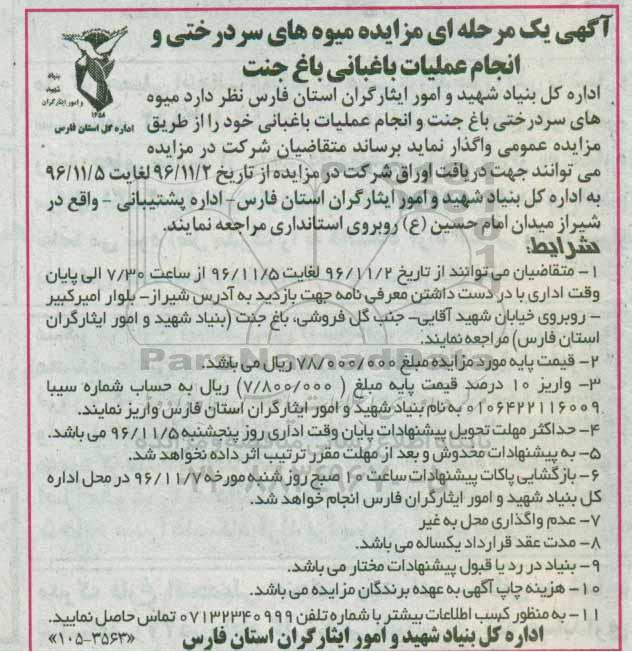 آگهی یک مرحله ای مزایده میوه های سردرختی و
انجام عملیات باغبانی باغ جنت
بنیاد
شهید
و امور ایثارگران
۱۳۵۸
اداره کل استان فارس
اداره کل بنیاد شهید و امور ایثارگران استان فارس نظر دارد میوه
های سردرختی باغ جنت و انجام عملیات باغبانی خود را از طریق
مزایده عمومی واگذار نماید برساند متقاضیان شرکت در مزایده
می توانند جهت دریافت اوراق شرکت در مزایده از تاریخ ۹۶/۱۱/۲ لغایت ۹۶/۱۱/۵
به اداره کل بنیاد شهید و امور ایثارگران استان فارس- اداره پشتیبانی - واقع در
شیراز میدان امام حسین (ع) روبروی استانداری مراجعه نمایند.
شرایط:
۱- متقاضیان می توانند از تاریخ ۹۶/۱۱/۲ لغایت ۹۶/۱۱/۵ از ساعت ۷/۳۰ الی پایان
وقت اداری با در دست داشتن معرفی نامه جهت بازدید به آدرس شیراز- بلوار امیرکبیر
- روبروی خیابان شهید آقایی- جنب گل فروشی، باغ جنت (بنیاد شهید و امور ایثارگران
استان فارس) مراجعه نمایند.
۲- قیمت پایه مورد مزایده مبلغ ۷۸/۰۰۰/۰۰۰ ریال می باشد.
۳- واریز ۱۰ درصد قیمت پایه مبلغ ( ۷/۸۰۰/۰۰۰) ریال به حساب شماره سیبا
۰۱۰۶۴۲۲۱۱۶۰۰۹ به نام بنیاد شهید و امور ایثارگران استان فارس واریز نمایند.
۴- حداکثر مهلت تحویل پیشنهادات پایان وقت اداری روز پنجشنبه ۹۶/۱۱/۵ می باشد.
۵- به پیشنهادات مخدوش و بعد از مهلت مقرر ترتیب اثر داده نخواهد شد.
۶- بازگشایی پاکات پیشنهادات ساعت ۱۰ صبح روز شنبه مورخه ۹۶/۱۱/۷ در محل اداره
کل بنیاد شهید و امور ایثارگران فارس انجام خواهد شد.
۷- عدم واگذاری محل به غیر
۸- مدت عقد قرارداد یکساله می باشد.
۹- بنیاد در رد یا قبول پیشنهادات مختار می باشد.
۱۰- هزینه چاپ آگهی به عهده برندگان مزایده می باشد.
۱۱- به منظور کسب اطلاعات بیشتر با شماره تلفن ۰۷۱۳۲۳۴۰۹۹۹ تماس حاصل نمایید.
اداره کل بنیاد شهید و امور ایثارگران استان فارس
«۱۰۵-۳۵۶۳»
ParsNamadData